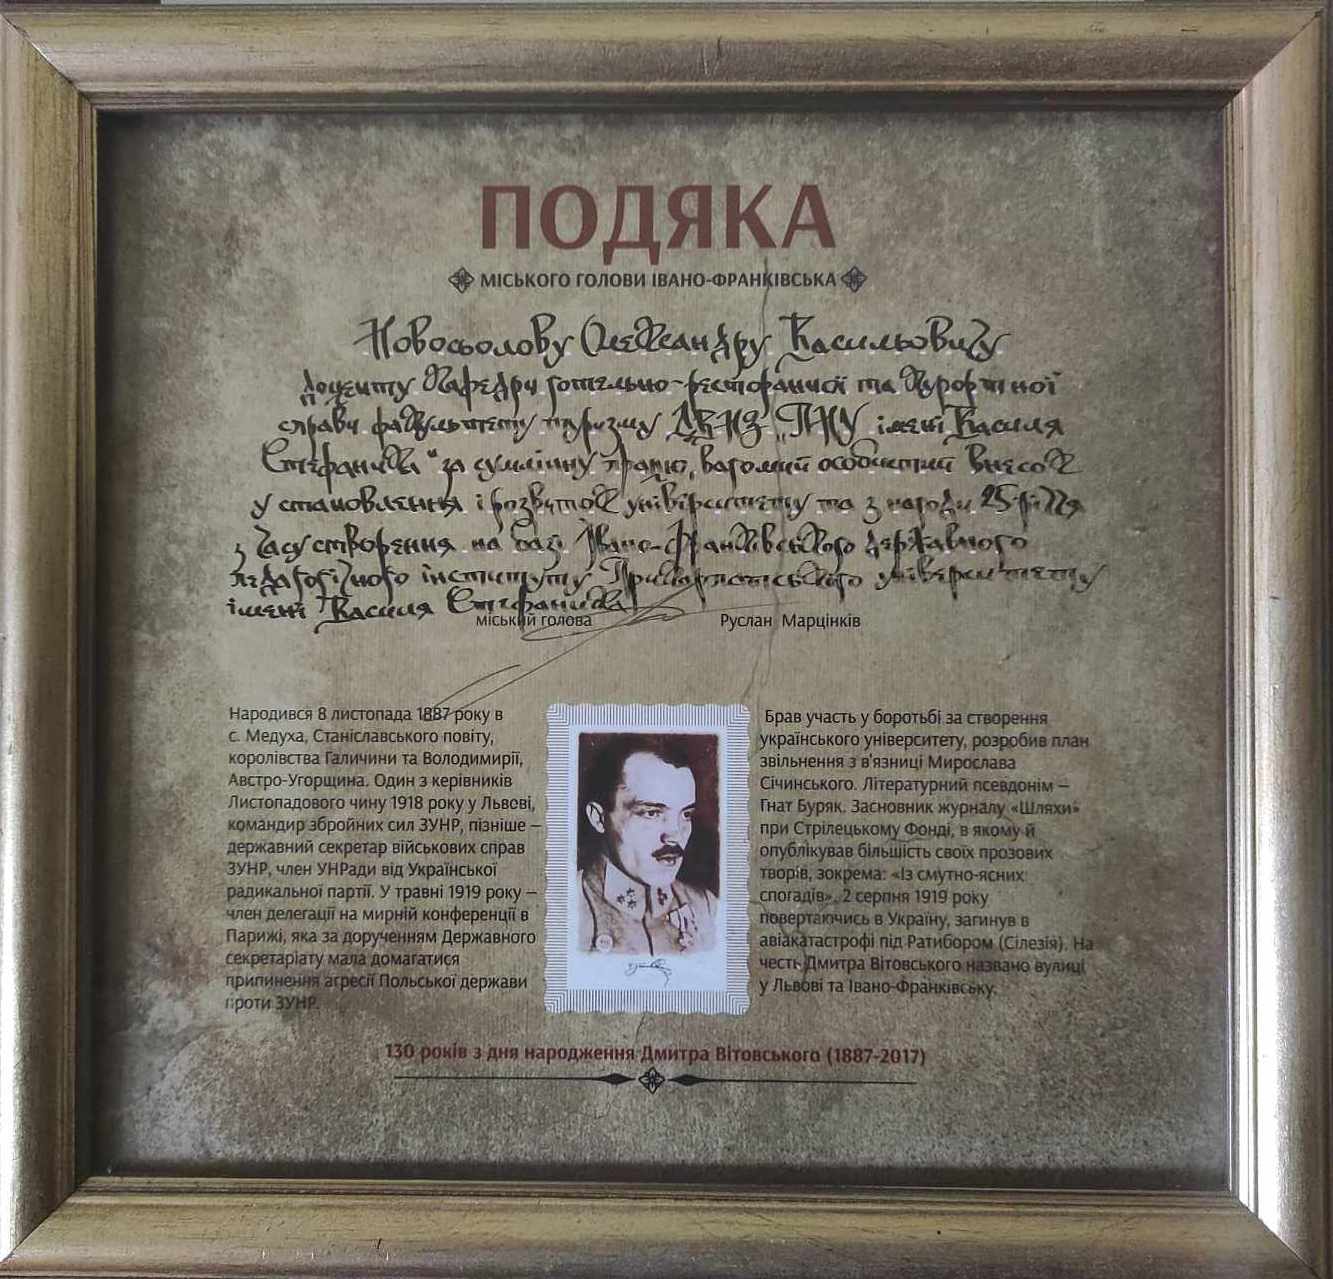 ПОДЯКА
МІСЬКОГО ГОЛОВИ ІВАНО-ФРАНКІВСЬКА
Новосьолову Олександру Васильовичу
доценту кафедри готельно-ресторанної та курортної
справи факультету туризму ДВНЗ „ПНУ імені Василя
Стефаника" за сумлінну працю, вагомий особистий внесок
у становлення і розвиток університету та з нагоди 25-річчя
з часу створення на базі Івано-Франківського державного
педагогічного інституту Прикарпатського університету
імені Василя Стефаника
міський голова Руслан Марцінків
Народився 8 листопада 1887 року в
с. Медуха, Станіславського повіту,
королівства Галичини та Володимирії,
Австро-Угорщина. Один з керівників
Листопадового чину 1918 року у Львові,
командир збройних сил ЗУНР, пізніше –
державний секретар військових справ
ЗУНР, член УНРади від Української
радикальної партії. У травні 1919 року –
член делегації на мирній конференції в
Парижі, яка за дорученням Державного
секретаріату мала домагатися
припинення агресії Польської держави
проти ЗУНР.
Брав участь у боротьбі за створення
українського університету, розробив план
звільнення з в'язниці Мирослава
Січинського. Літературний псевдонім –
Гнат Буряк. Засновник журналу «Шляхи»
при Стрілецькому Фонді, в якому й
опублікував більшість своїх прозових
творів, зокрема: «Із смутно-ясних
спогадів». 2 серпня 1919 року
повертаючись в Україну, загинув в
авіакатастрофі під Ратибором (Сілезія). На
честь Дмитра Вітовського названо вулиці
у Львові та Івано-Франківську.
130 років з дня народження Дмитра Вітовського (1887-2017)